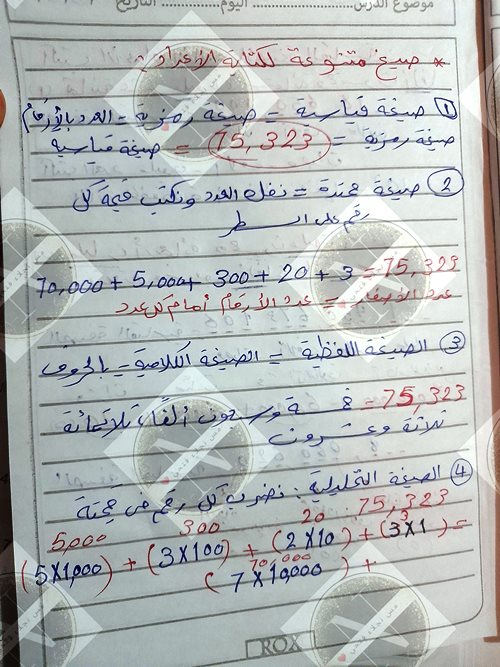 موضوع الدرس اليوم التاريخ
* صيغ متنوعة لكتابة الأعداد :
1 صيغة قياسية = صيغة رمزية = العدد بالأرقام
صيغة رمزية = 75,323 = صيغة قياسية
2 صيغة ممتدة = نفك العدد ونكتب قيمة كل
رقم على السطر
70,000 + 5,000 + 300 + 20 + 3 = 75,323
عدد الأصفار = عدد الأرقام أمام كل عدد
3 الصيغة اللفظية = الصيغة الكلامية = بالحروف
75,323 = خمسة وسبعون ألفًا، ثلاثمائة
ثلاثة وعشرون
4 الصيغة التحليلية : نضرب كل رقم في قيمته
75,323
5,000 300 20 3
(5×1,000) + (3×100) + (2×10) + (3×1) =
70,000
(7×10,000) +
ROX